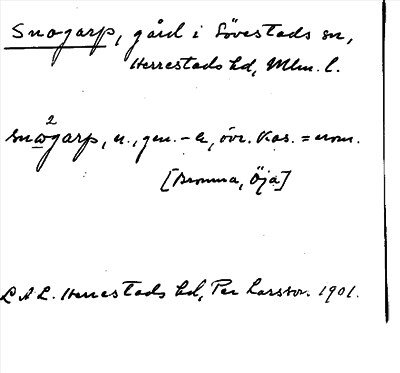 Snogarp, gård i Sövestads sn,
Herrestads hd, Mlm. l.
2
snωgarp, n., gen. -s, övr. kas. = nom.
[Bromma, Öja]
L A L. Herrestads hd, Per Larsson. 1901.